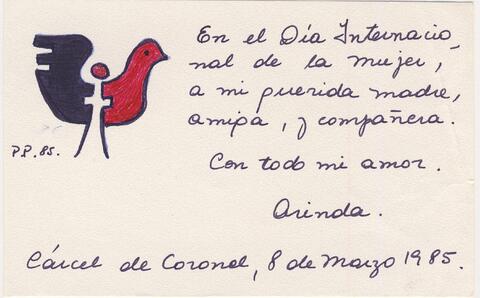 En el Día Internacio_
nal de la mujer,
a mi querida madre,
amiga, y compañera.
Con todo mi amor.
Arinda.
P.P. 85.
Cárcel de Coronel, 8 de Marzo 1985.